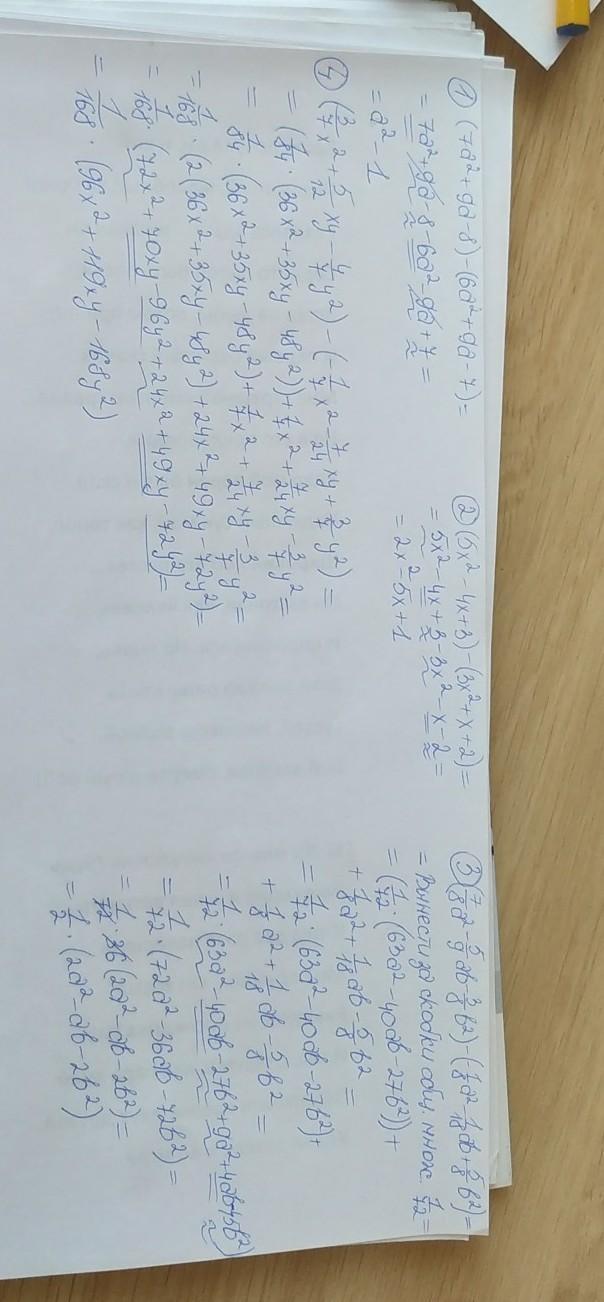 ① (7a²+9a-8)-(6a²+9a-7)=
= 7a²+9a-8-6a²-9a+7=
= a²-1
② (5x²-4x+3)-(3x²+x+2)=
= 5x²-4x+3-3x²-x-2=
= 2x²-5x+1
③ (7/8a²-5/9ab-3/8b²)-(-1/8a²-1/18ab+5/8b²)=
= Вынести за скобки общ. множ. 1/72=
= (1/72·(63a²-40ab-27b²))+
+1/8a²+1/18ab-5/8b²=
= 1/72·(63a²-40ab-27b²)+
+1/8a²+1/18ab-5/8b²=
= 1/72·(63a²-40ab-27b²+9a²+4ab-45b²)
= 1/72·(72a²-36ab-72b²)=
= 1/72·36(2a²-ab-2b²)=
= 1/2·(2a²-ab-2b²)
④ (3/7x²+5/12xy-4/7y²)-(-1/7x²-7/24xy+3/7y²)=
= (1/84·(36x²+35xy-48y²))+1/7x²+7/24xy-3/7y²=
= 1/84·(36x²+35xy-48y²)+1/7x²+7/24xy-3/7y²=
= 1/168·(2(36x²+35xy-48y²)+24x²+49xy-72y²)=
= 1/168·(72x²+70xy-96y²+24x²+49xy-72y²)=
= 1/168·(96x²+119xy-168y²)